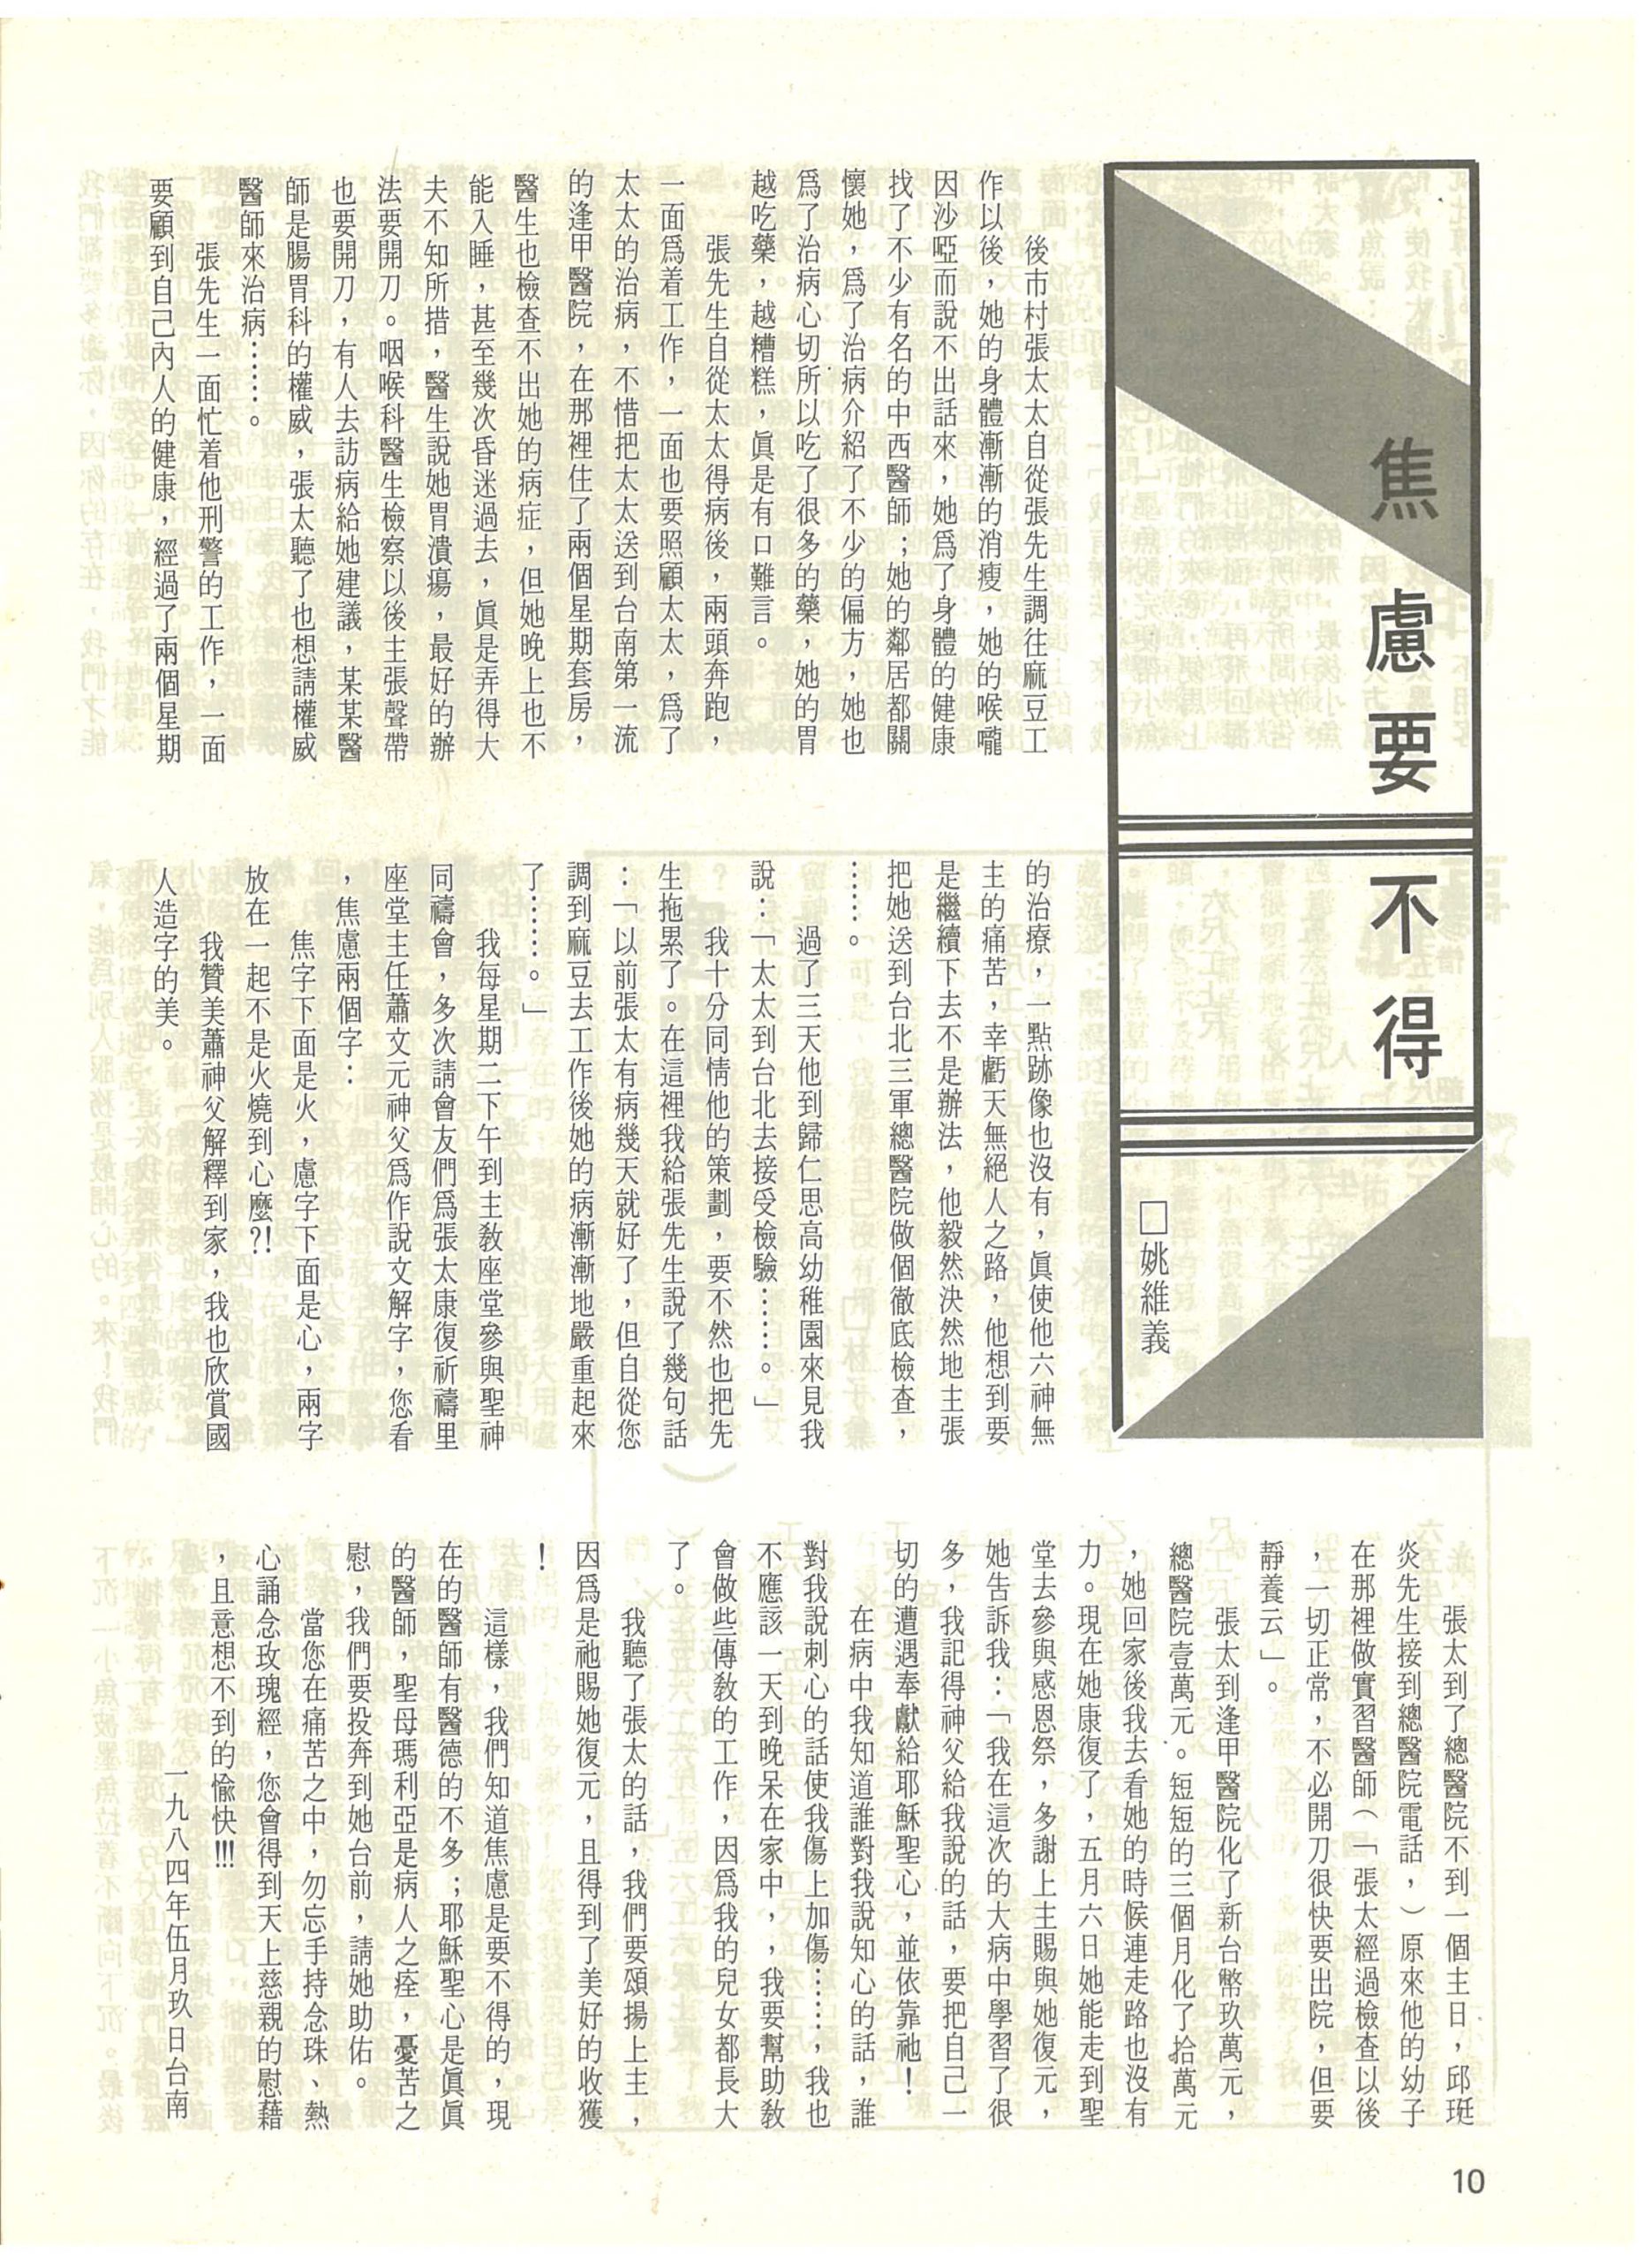 焦慮要不得
□姚維義
後市村張太太自從張先生調往麻豆工
作以後，她的身體漸漸的消瘦，她的喉嚨
因沙啞而說不出話來，她爲了身體的健康
找了不少有名的中西醫師；她的鄰居都關
懷她，爲了治病介紹了不少的偏方，她也
爲了治病心切所以吃了很多的藥，她的胃
越吃藥，越糟糕，眞是有口難言。
張先生自從太太得病後，兩頭奔跑，
一面爲着工作，一面也要照顧太太，爲了
太太的治病，不惜把太太送到台南第一流
的逢甲醫院，在那裡住了兩個星期套房，
醫生也檢查不出她的病症，但她晚上也不
能入睡，甚至幾次昏迷過去，眞是弄得大
夫不知所措，醫生說她胃潰瘍，最好的辦
法要開刀。咽喉科醫生檢察以後主張聲帶
也要開刀，有人去訪病給她建議，某某醫
師是腸胃科的權威，張太聽了也想請權威
醫師來治病……。
張先生一面忙着他刑警的工作，一面
要顧到自己內人的健康，經過了兩個星期
的治療，一點跡像也沒有，眞使他六神無
主的痛苦，幸虧天無絕人之路，他想到要
是繼續下去不是辦法，他毅然決然地主張
把她送到台北三軍總醫院做個徹底檢查，
……。
過了三天他到歸仁思高幼稚園來見我
說：「太太到台北去接受檢驗……。」
我十分同情他的策劃，要不然也把先
生拖累了。在這裡我給張先生說了幾句話
：「以前張太有病幾天就好了，但自從您
調到麻豆去工作後她的病漸漸地嚴重起來
了……。」
我每星期二下午到主敎座堂參與聖神
同禱會，多次請會友們爲張太康復祈禱里
座堂主任蕭文元神父爲作說文解字，您看
，焦慮兩個字：
焦字下面是火，慮字下面是心，兩字
放在一起不是火燒到心麼?!
我贊美蕭神父解釋到家，我也欣賞國
人造字的美。
張太到了總醫院不到一個主日，邱珽
炎先生接到總醫院電話，）原來他的幼子
在那裡做實習醫師（「張太經過檢查以後
，一切正常，不必開刀很快要出院，但要
靜養云」。
張太到逢甲醫院化了新台幣玖萬元，
總醫院壹萬元。短短的三個月化了拾萬元
，她回家後我去看她的時候連走路也沒有
力。現在她康復了，五月六日她能走到聖
堂去參與感恩祭，多謝上主賜與她復元，
她告訴我：「我在這次的大病中學習了很
多，我記得神父給我說的話，要把自己一
切的遭遇奉獻給耶穌聖心，並依靠祂！
在病中我知道誰對我說知心的話，誰
對我說刺心的話使我傷上加傷……，我也
不應該一天到晚呆在家中，，我要幫助敎
會做些傳敎的工作，因爲我的兒女都長大
了。
我聽了張太的話，我們要頌揚上主，
因爲是祂賜她復元，且得到了美好的收獲
！
這樣，我們知道焦慮是要不得的，現
在的醫師有醫德的不多；耶穌聖心是眞眞
的醫師，聖母瑪利亞是病人之痊，憂苦之
慰，我們要投奔到她台前，請她助佑。
當您在痛苦之中，勿忘手持念珠、熱
心誦念玫瑰經，您會得到天上慈親的慰藉
，且意想不到的愉快!!!
一九八四年伍月玖日台南
10